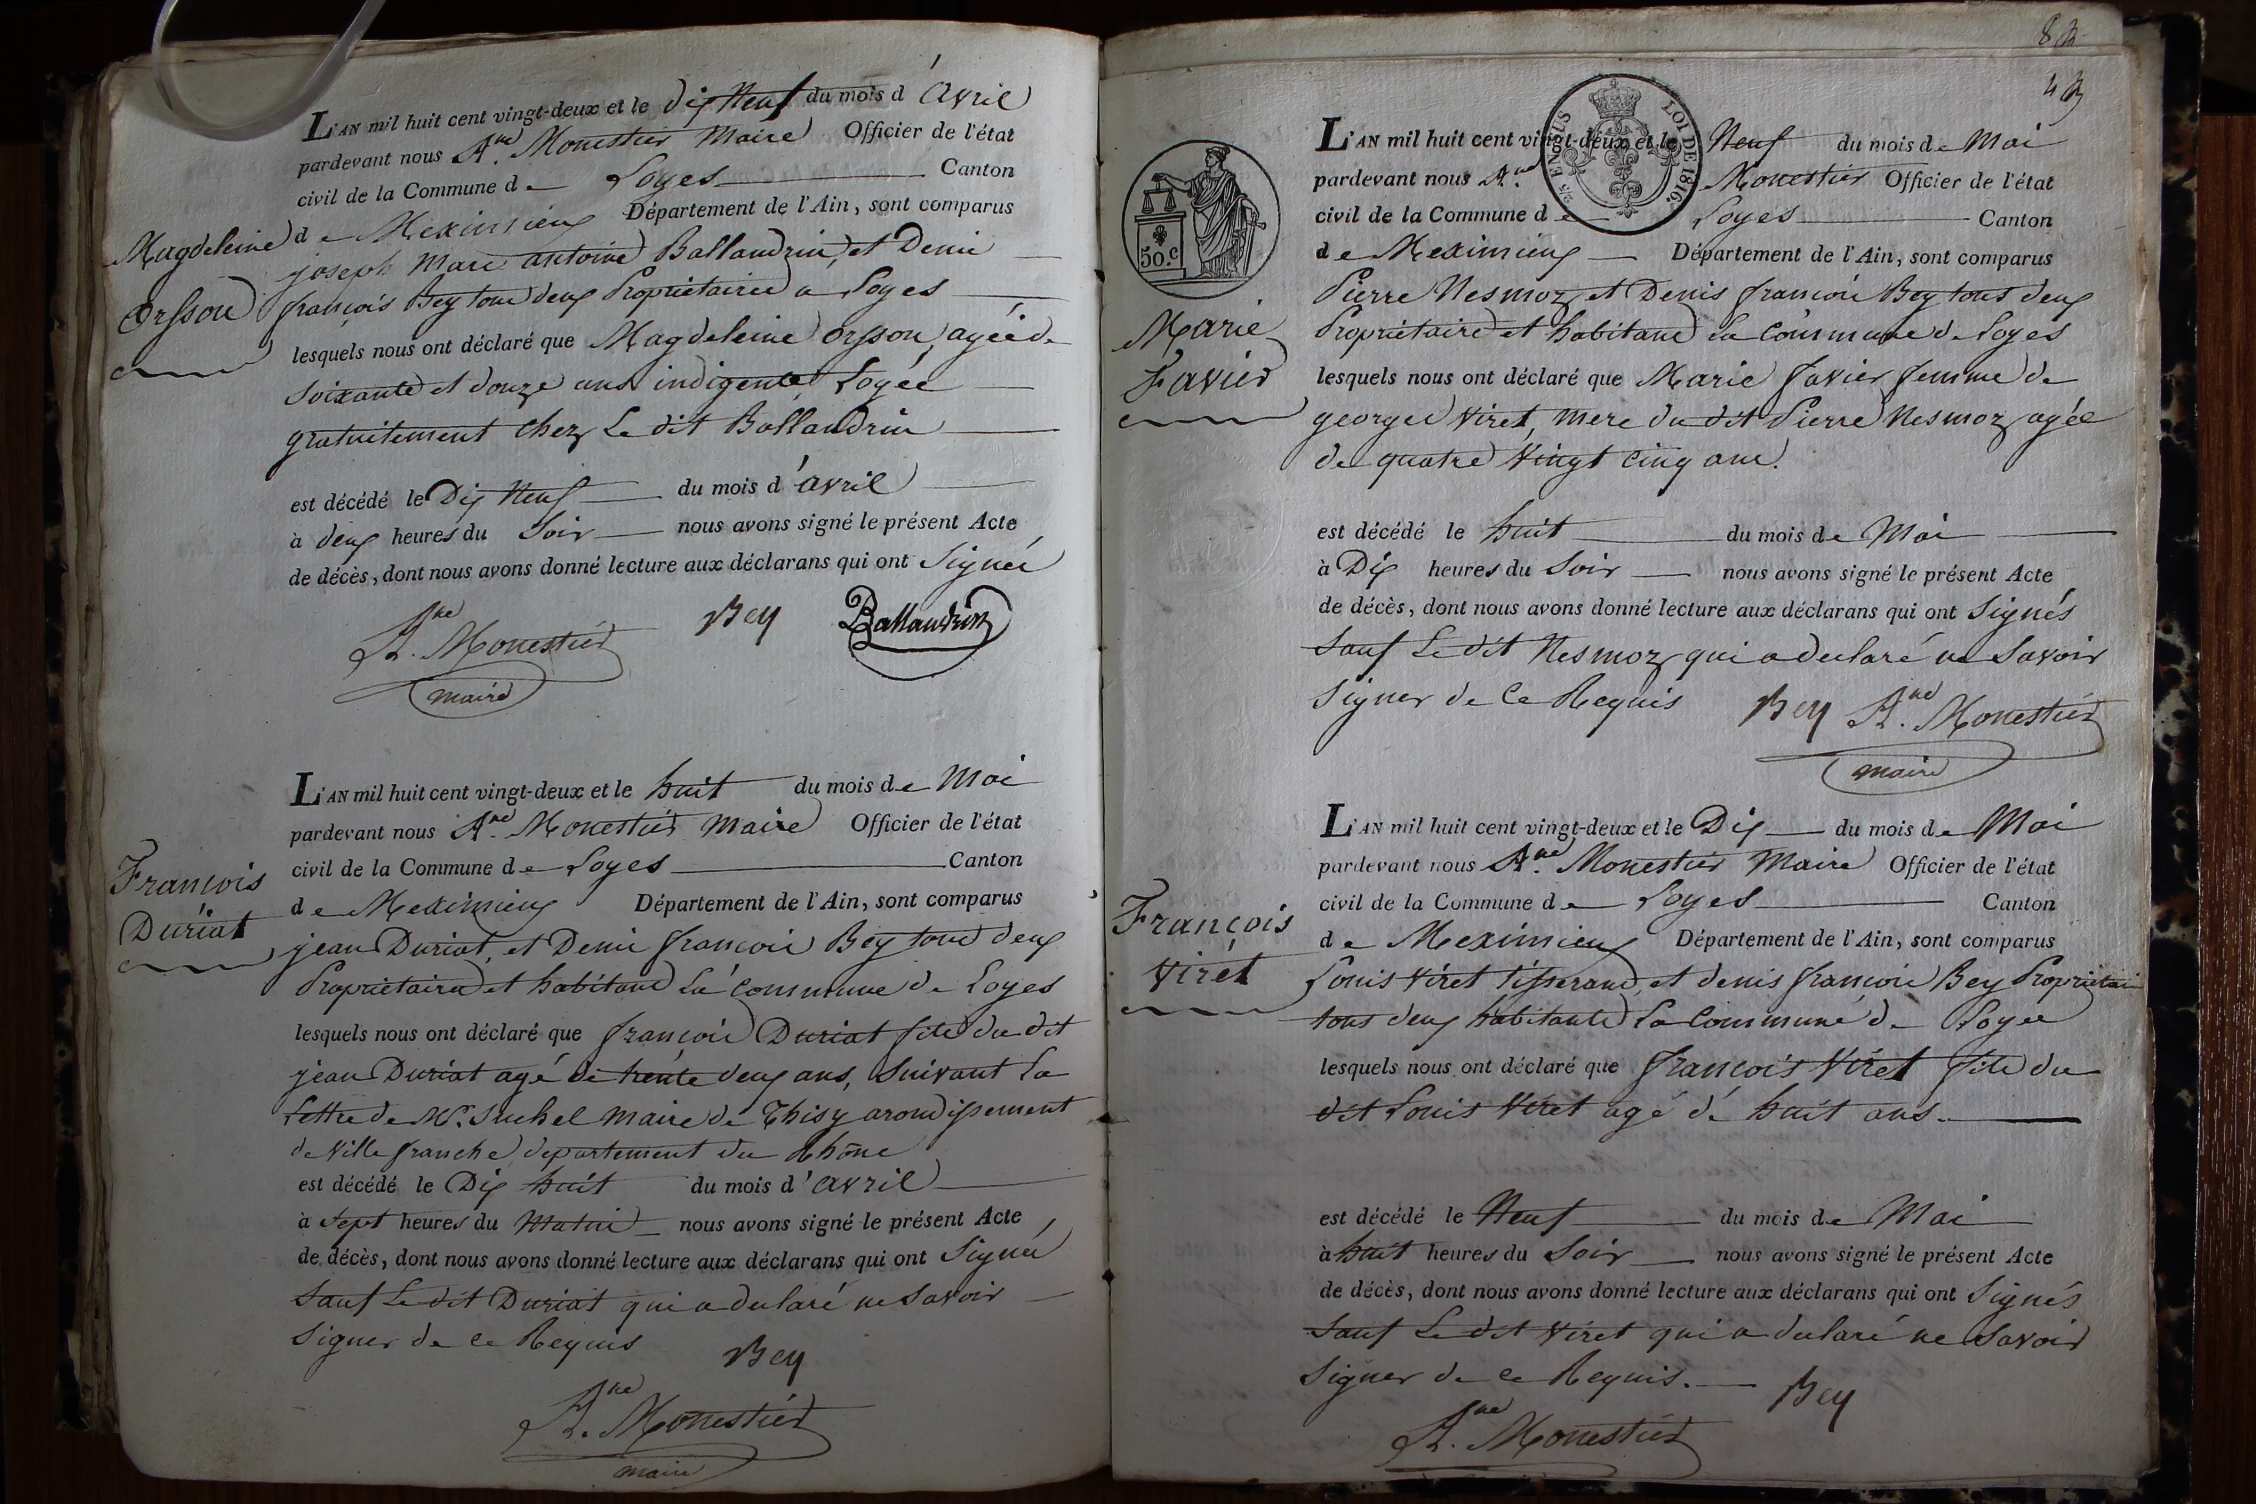 L'AN mil huit cent vingt-deux et le dix Neuf du mois d'Avril
pardevant nous A.ne Monestier Maire Officier de l'état
civil de la Commune de Loyes Canton
de Meximieux Département de l'Ain, sont comparus
Magdeleine
Orsson
joseph Marc antoine Ballandrin, et Denis
françois Bey tous deux Propriétaires a Loyes
lesquels nous ont déclaré que Magdeleine orsson, agée de
soixante et douze ans indigente, Logée
gratuitement chez Le dit Ballandrin
est décédé le Dix Neuf du mois d'avril
à deux heures du Soir nous avons signé le présent Acte
de décès, dont nous avons donné lecture aux déclarans qui ont Signés
A.ne Monestier Bey Ballandrin
maire
L'AN mil huit cent vingt-deux et le huit du mois de Mai
pardevant nous A.ne Monestier Maire Officier de l'état
civil de la Commune de Loyes Canton
de Meximieux Département de l'Ain, sont comparus
François
Duriat
jean Duriat, et Denis françois Bey tous deux
Propriétaires et habitans La Commune de Loyes
lesquels nous ont déclaré que françois Duriat fils du dit
jean Duriat agé de trente deux ans, Suivant La
Lettre de Mr. Suchel Maire de Thisy arondissement
de Ville franche, departement du Rhône
est décédé le Dix huit du mois d'avril
à Sept heures du Matin nous avons signé le présent Acte
de décès, dont nous avons donné lecture aux déclarans qui ont Signés
Sauf Le dit Duriat qui a declaré ne Savoir
Signer de ce Requis
Bey
A.ne Monestier
maire
8
4
5/5 EN SUS
LOI DE 1816.
50.c
L'AN mil huit cent vingt-deux et le Neuf du mois de Mai
pardevant nous A.ne Monestier Officier de l'état
civil de la Commune de Loyes Canton
de Meximieux Département de l'Ain, sont comparus
Marie
Favier
Pierre Nesmoz et Denis françois Bey tous deux
Propriétaires et habitans La Commune de Loyes
lesquels nous ont déclaré que Marie favier femme de
georges Viret, Mere du dit Pierre Nesmoz, agée
de quatre Vingt Cinq ans.
est décédé le huit du mois de Mai
à Dix heures du Soir nous avons signé le présent Acte
de décès, dont nous avons donné lecture aux déclarans qui ont Signés
Sauf Le dit Nesmoz qui a declaré ne Savoir
Signer de Ce Requis Bey A.ne Monestier
maire
L'AN mil huit cent vingt-deux et le Dix du mois de Mai
pardevant nous A.ne Monestier Maire Officier de l'état
civil de la Commune de Loyes Canton
de Meximieux Département de l'Ain, sont comparus
François
Viret
Louis Viret tisserand, et denis françois Bey Propriétaire
tous deux habitants La Commune de Loyes
lesquels nous ont déclaré que françois Viret fils du
dit Louis Viret agé de huit ans.
est décédé le Neuf du mois de Mai
à huit heures du Soir nous avons signé le présent Acte
de décès, dont nous avons donné lecture aux déclarans qui ont Signés
Sauf Le dit Viret qui a declaré ne Savoir
Signer de ce Requis. Bey
A.ne Monestier